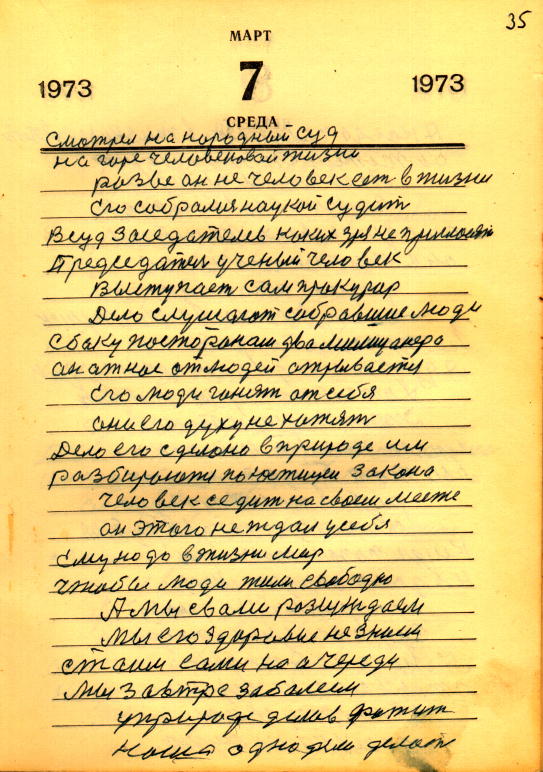 35
МАРТ
1973 7 1973
СРЕДА
Смотрел на народный суд
на горе человековой жизни
разве он не человек ест в жизни
Его собралися наукой судит
В суд Заседателев каких зря не
Председател ученый человек
Выступает сам прокурар
Дело слушают собравшие люди
с баку посторонам два милицанера
ан атное от людей отрывается
Его люди гонят от себя
они его духу не хотят
Дело его сделоно в природе им
разбирают по юстицеи Закона
человек седит на своем месте
он этого не ждал у себя
Ему надо в жизни мир
Чтобы люди жили свободно
А мы с вами розсуждаем
мы его здоровие не знаем
стаим сами на очереди
мы завтре заболеем
у природе делов фатит
одно дело делат